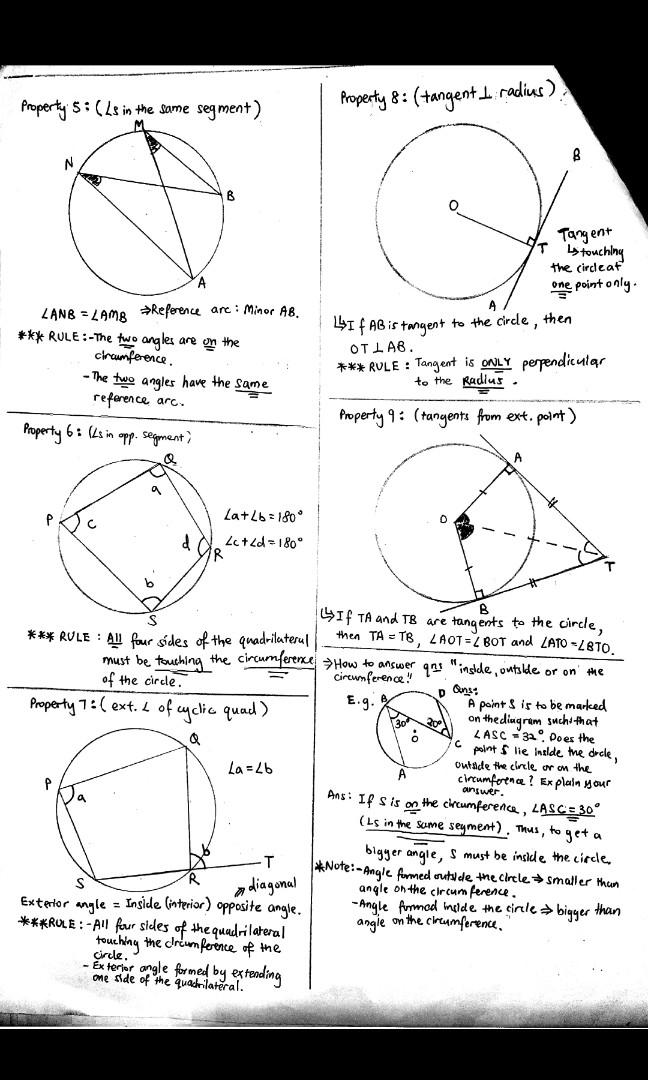 Property 5: (∠s in the same segment)
M
N
B
A
∠ANB = ∠AMB ⇒ Reference arc: Minor AB.
*** RULE:- The two angles are on the
circumference.
- The two angles have the same
reference arc.
Property 6: (∠s in opp. segment)
Q
a
P
c
∠a+∠b=180°
d
R
∠c+∠d=180°
b
S
*** RULE : All four sides of the quadrilateral
must be touching the circumference
of the circle.
Property 7: (ext. ∠ of cyclic quad)
Q
∠a=∠b
P
a
b
T
S
R
diagonal
Exterior angle = Inside (interior) opposite angle.
***RULE:- All four sides of the quadrilateral
touching the circumference of the
circle.
- Exterior angle formed by extending
one side of the quadrilateral.
Property 8: (tangent ⊥ radius)
B
O
T
A
Tangent
↳ touching
the circle at
one point only.
↳ If AB is tangent to the circle, then
OT ⊥ AB.
*** RULE : Tangent is ONLY perpendicular
to the Radius.
Property 9: (tangents from ext. point)
A
O
T
B
↳ If TA and TB are tangents to the circle,
then TA = TB, ∠AOT=∠BOT and ∠ATO=∠BTO.
⇒ How to answer qns "inside, outside or on the
circumference!"
E.g.
B
D
30°
20°
O
C
A
Qns:
A point S is to be marked
on the diagram such that
∠ASC = 32°. Does the
point S lie inside the circle,
outside the circle or on the
circumference? Explain your
answer.
Ans: If S is on the circumference, ∠ASC = 30°
(∠s in the same segment). Thus, to get a
bigger angle, S must be inside the circle.
*Note:- Angle formed outside the circle ⇒ smaller than
angle on the circumference.
- Angle formed inside the circle ⇒ bigger than
angle on the circumference.